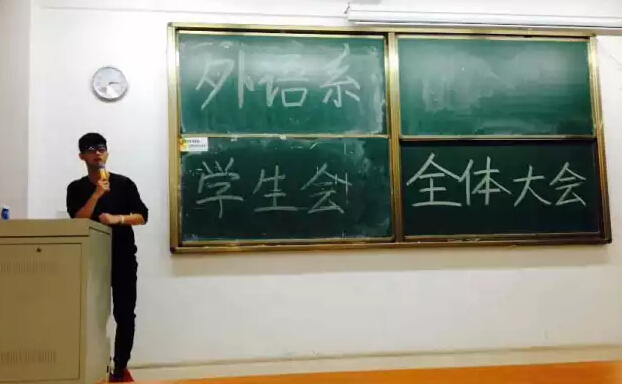 外语系
学生会
全体大会